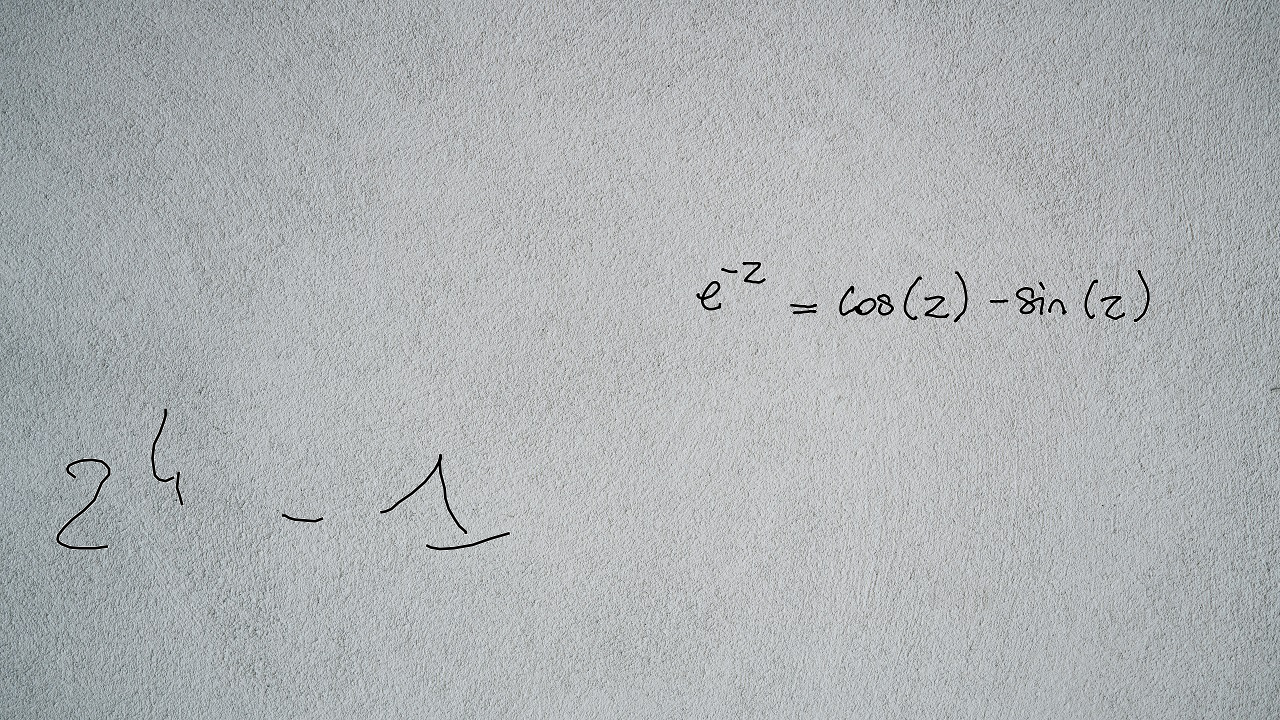 e^{-z} = cos(z) - sin(z)
2^4 - 1